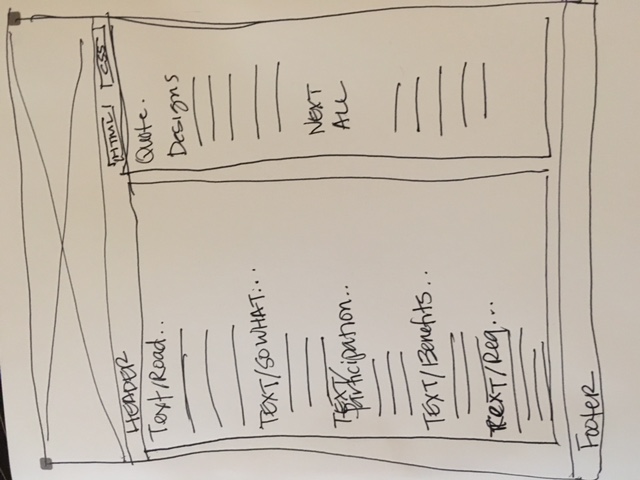 HEADER
HTML
CSS
Text/Road..
TEXT/SO WHAT...
TEXT/
Participation..
TEXT/Benefits..
TEXT/Req...
Quote.
Designs
NEXT
ALL
Footer